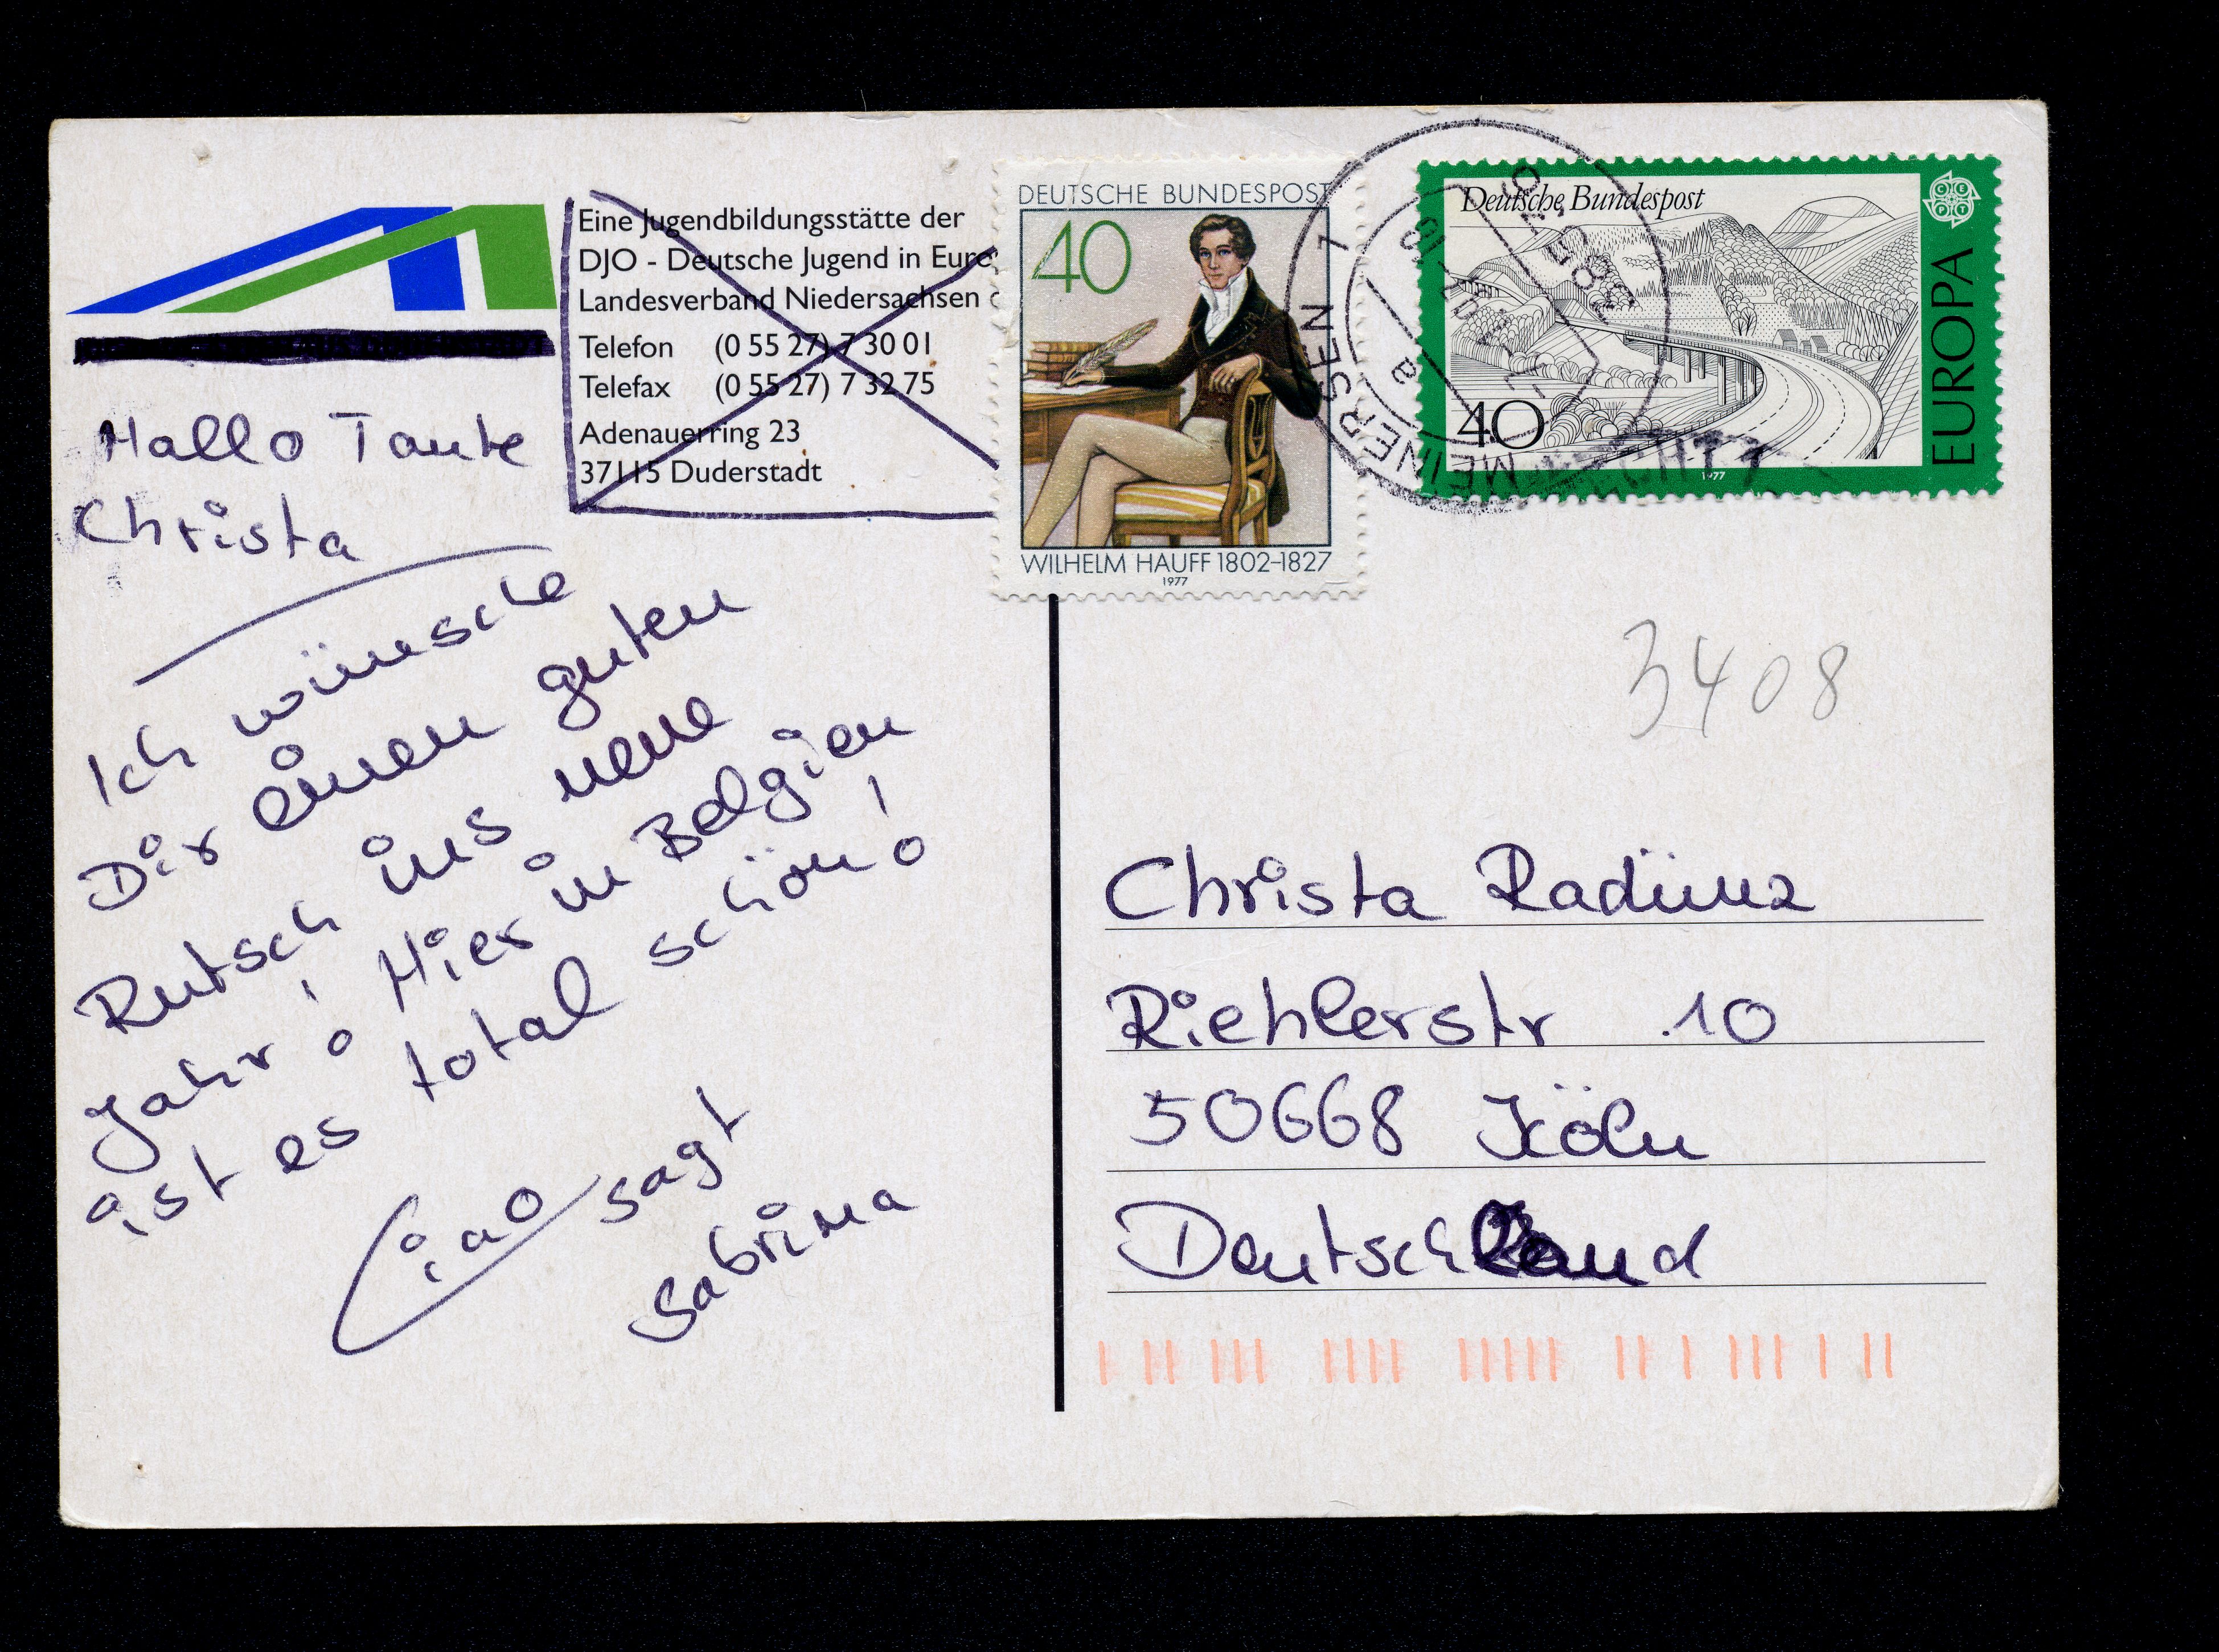 Eine Jugendbildungsstätte der
DJO - Deutsche Jugend in Euro
Landesverband Niedersachsen
Telefon (0 55 27) 7 30 01
Telefax (0 55 27) 7 32 75
Adenauerring 23
37115 Duderstadt
Hallo Tante
Christa
Ich wünsche
Dir einen guten
Rutsch ins neue
Jahr! Hier in Belgien
ist es total schön!
Ciao sagt
Sabrina
DEUTSCHE BUNDESPOST
40
WILHELM HAUFF 1802-1827
1977
Deutsche Bundespost
CEPT
EUROPA
40
1977
MEINERSEN 1
a
3408
Christa Radünz
Riehlerstr 10
50668 Köln
Deutschland